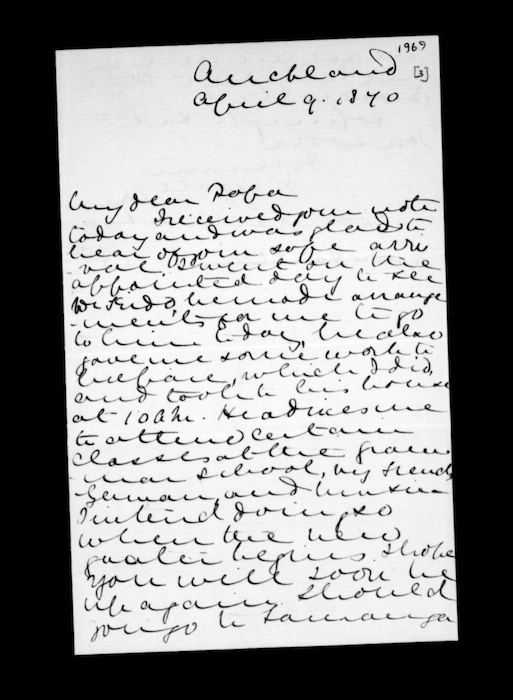 1969
[3]
Auckland
April 9. 1870
My dear Papa
I received your note
today and was glad to
hear of your safe arri
-val. I went on the
appointed day to see
he made arrange
-ments for me to go
to him today, he also
gave me some work to
prepare, which I did,
and took to his house
at 10 a.m. He advises me
to attend certain
classes at the gram
-mar school, viz French
German, and
I intend doing so
when the new
quarter begins. I hope
you will soon be
up again, should
you go to Tauranga